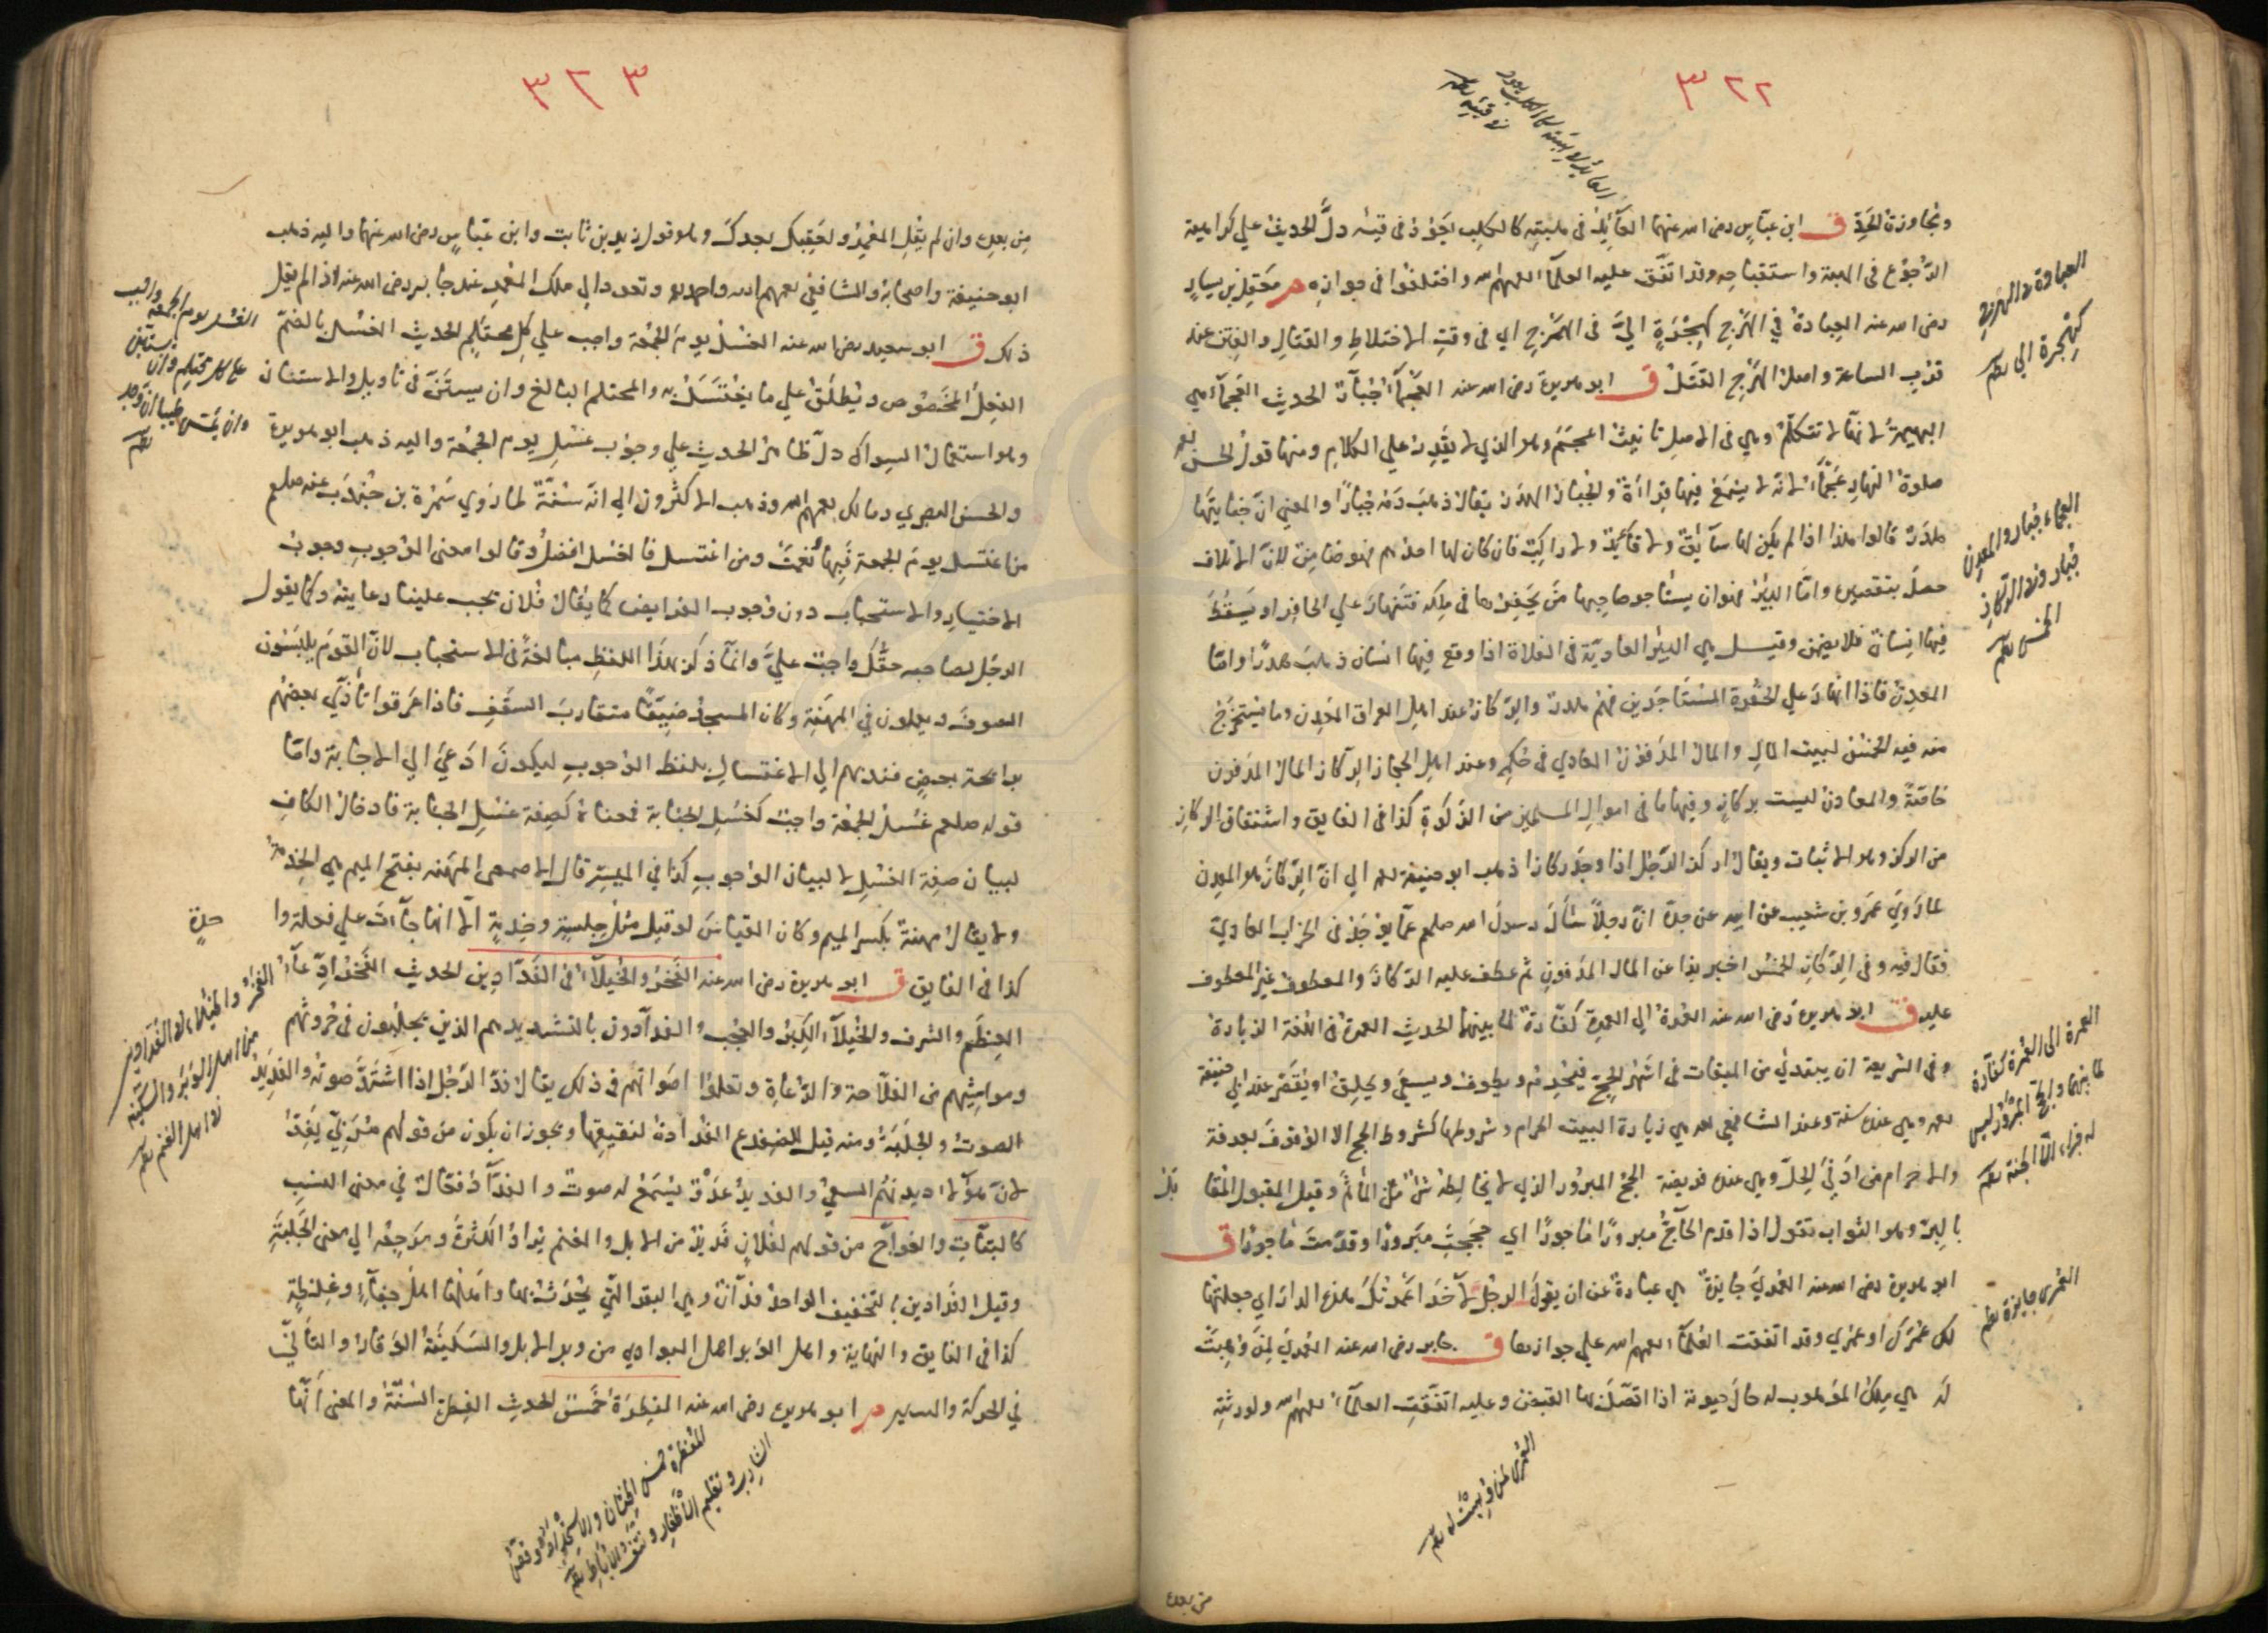 ٣٢٢
العائد في هبته كالكلب يعود
في قيئه
ومجاوزة الحد ق ابن عباس رضى الله عنهما العائد فى هبته كالكلب يعود فى قيئه دل الحديث علي كراهية
الرجوع فى الهبة واستقباحه وقد اتفق عليه العلماء رحمهم الله واختلفوا فى جوازه م معقل بن يسار
رضى الله عنه العبادة في الهرج كهجرة اليّ فى الهرج اي فى وقت الاختلاط والقتال والفتن عند
قرب الساعة واصل الهرج القتل ق ابو هريرة رضى الله عنه العجماء جبار الحديث العجماء هي
البهيمة لانها لا تتكلم وهي فى الاصل تانيث اعجم وهو الذي لا يقدر علي الكلام ومنها قول الحسن
صلوة النهار عجماء لانه لا يسمع فيها قراءة والجبار الهدر يقال ذهب دمه جبارا والمعني ان جنايتها
هدر قالوا هذا اذا لم يكن لها سائق ولا قائد ولا راكب فان كان لها احدهم فهو ضامن لان الاتلاف
حصل بتقصيره واما البئر فهو ان يستأجر صاحبها من يحفرها فى ملكه فتنهار علي الحافر او يسقط
فيها انسان فلا يضمن وقيل هي البئر العادية فى الفلاة اذا وقع فيها انسان ذهب هدرا واما
المعدن فاذا انهار علي الحفرة المستأجرين فهم هدر والركاز عند اهل العراق المعدن وما يستخرج
منه فيه الخمس لبيت المال والمال المدفون العادي فى حكمه وعند اهل الحجاز الركاز المال المدفون
خاصة والمعادن ليست بركاز وفيها ما فى اموال المسلمين من الزكوة كذا فى الفايق واشتقاق الركاز
من الركز وهو الاثبات ويقال اركز الرجل اذا وجد ركازا ذهب ابو حنيفة رحمه الي ان الركاز هو المعدن
لما روي عمرو بن شعيب عن ابيه عن جده ان رجلا سأل رسول الله صلعم عما يوجد فى الخراب العادي
فقال فيه وفى الركاز الخمس اخبر بذا عن المال المدفون ثم عطف عليه الركاز والمعطوف غير المعطوف
عليه ق ابو هريرة رضى الله عنه العمرة الي العمرة كفارة لما بينهما الحديث العمرة فى اللغة الزيارة
وفى الشريعة ان يبتدئ من الميقات فى اشهر الحج فيحرم ويطوف ويسعى ويحلق او يقصر عند ابي حنيفة
رحمه وهي عنده سنة وعند الشافعي رحمه هي زيارة البيت الحرام وشروطها كشروط الحج الا الوقوف بعرفة
والاحرام من ادني الحل وهي عنده فريضة الحج المبرور الذي لا يخالطه شئ من المأثم وقيل المقبول المقا
بل
بالبر وهو الثواب تقول اذا قدم الحاج مبرورا مأجورا اي حججت مبرورا وقدمت مأجورا ق
ابو هريرة رضى الله عنه العمري جايزة هي عبارة عن ان يقول الرجل لاخر اعمرتك هذه الدار اي جعلتها
لك عمرك او عمري وقد اتفقت العلماء رحمهم الله علي جوازها ق جابر رضى الله عنه العمري لمن وهبت
له هي ملك الموهوب له حال حيوته اذا اتصل بها القبض وعليه اتفقت العلماء رحمهم الله ولورثته
العبادة فى الهرج
كهجرة الي
العجماء جبار والمعدن
جبار وفى الركاز
الخمس
العمرة الى العمرة كفارة
لما بينهما والحج المبرور ليس
له جزاء الا الجنة
العمرى جايزة
العمرى لمن وهبت له
من بعده
٣٢٣
مِن بعده وان لم يقل المعمر ولعقبك بعدك وهو قول زيد بن ثابت وابن عباس رضى الله عنهما واليه ذهب
ابو حنيفة واصحابه والشافعي رحمهم الله واحمد وتعود الي ملك المعمر عند جابر رضى الله عنه اذا لم يقل
ذلك ق ابو سعيد رضى الله عنه الغسل يوم الجمعة واجب علي كل محتلم الحديث الغسل بالضم
الفعل المخصوص ويطلق علي ما يغتسل به والمحتلم البالغ وان يستن فى تاويل والاستنان
وهو استعمال السواك دل ظاهر الحديث علي وجوب غسل يوم الجمعة واليه ذهب ابو هريرة
والحسن البصري ومالك رحمهم الله وذهب الاكثرون الي انه سنة لما روي سمرة بن جندب عنه صلعم
من اغتسل يوم الجمعة فبها ونعمت ومن اغتسل فالغسل افضل وقالوا معنى الوجوب وجوب
الاختيار والاستحباب دون وجوب الفرايض كما يقال فلان يجب علينا رعايته وكما يقول
الرجل لصاحبه حقك واجب عليّ وانما ذكر هذا اللفظ مبالغة فى الاستحباب لان القوم يلبسون
الصوف ويعملون في المهنة وكان المسجد ضيقا متقارب السقف فاذا عرقوا تأذّي بعضهم
برائحة بعض فندبهم الي الاغتسال بلفظ الوجوب ليكون ادعي الي الاجابة واما
قوله صلعم غسل الجمعة واجب كغسل الجنابة فمعناه كصفة غسل الجنابة فادخال الكاف
لبيان صفة الغسل لا لبيان الوجوب كذا في الميسر قال الاصمعى المهنه بفتح الميم هي الخدمة
ولا يقال مهنة بكسر الميم وكان القياس لو قيل مثل جلسة وخدمة الا انها جاءت علي فعلة وا
حدة
كذا فى الفايق ق ابو هريرة رضى الله عنه الفخر والخيلاء فى الفدادين الحديث الفخر ادعاء
العظم والشرف والخيلاء الكبر والعجب والفدادون بالتشديد هم الذين يجلبون فى حروثهم
ومواشيهم من الفلاحة والرعاة وتعلوا اصواتهم فى ذلك يقال فد الرجل اذا اشتد صوته والفديد
الصوت والجلبة ومنه قيل للضفدع الفدادة لنقيقها ويجوز ان يكون من قولهم مر بي يفد
لان هؤلاء ديدنهم السعي والفديد عدو يسمع له صوت والفداد فعال في معنى النسب
كالبتات والعواج من قولهم لفلان فديد من الابل والغنم يراد الكثرة ومرجعه الي معنى الجلبة
وقيل الفدادين بالتخفيف الواحد فدان وهى البقر التي يحرث بها واهلها اهل جفاء وغلظة
كذا فى الفايق والنهاية واهل الوبر اهل البوادي من وبر الابل والسكينة الوقار والتأني
في الحركة والسير م ابو هريرة رضى الله عنه الفطرة خمس الحديث الفطرة السنة والمعنى انها
الغسل يوم الجمعة واجب
على كل محتلم وان يستن
وان يمس طيبا ان وجد
الفخر والخيلاء فى الفدادين
من اهل الوبر والسكينة
فى اهل الغنم
الفطرة خمس الختان والاستحداد وقص
الشارب وتقليم الاظفار ونتف الاباط